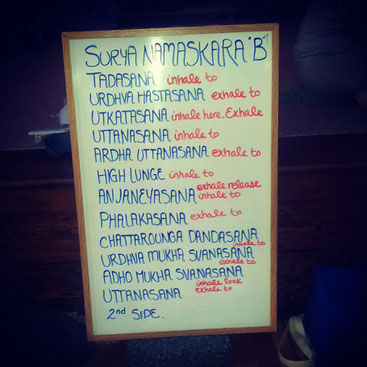 SURYA NAMASKARA 'B'
TADASANA inhale to
URDHVA HASTASANA exhale to
UTKATASANA inhale here. Exhale
UTTANASANA inhale to
ARDHA UTTANASANA exhale to
HIGH LUNGE inhale to
exhale release
ANJANEYASANA inhale to
PHALAKASANA exhale to
CHATTAROUNGA DANDASANA
inhale to
URDHVA MUKHA SVANASANA
exhale to
ADHO MUKHA SVANASANA
inhale look
UTTANASANA exhale to
2nd SIDE.